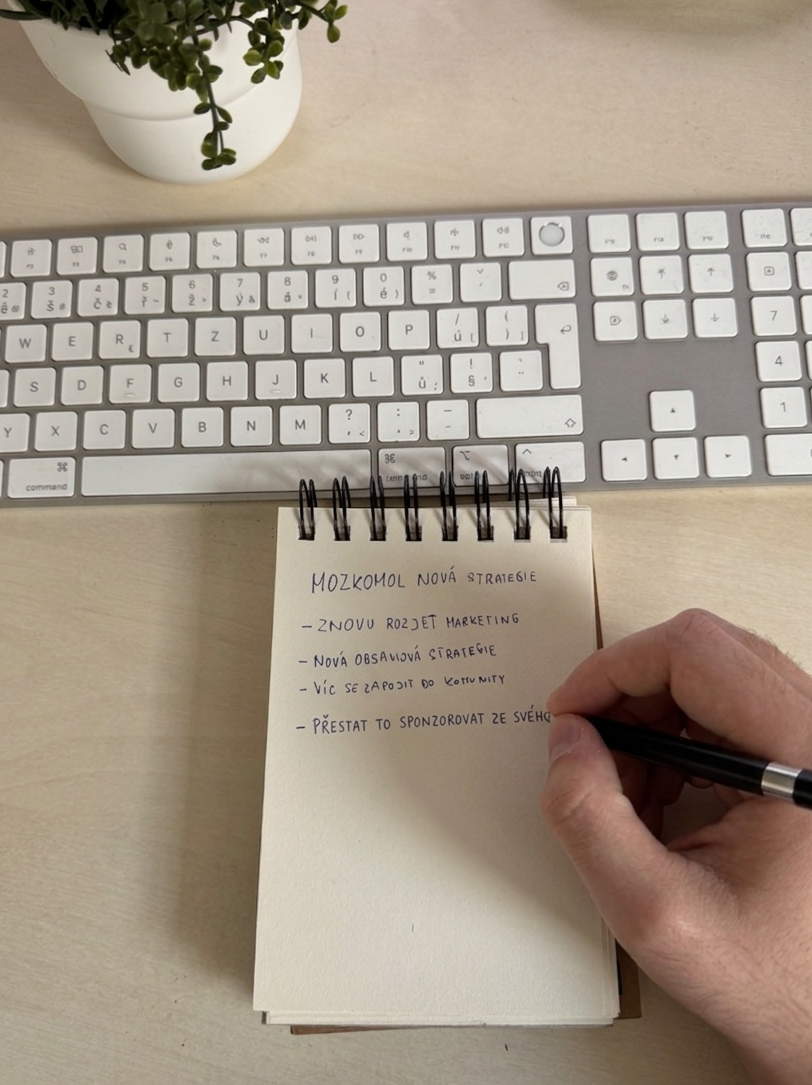 MOZKOMOL NOVÁ STRATEGIE
– ZNOVU ROZJET MARKETING
– NOVÁ OBSAHOVÁ STRATEGIE
– VÍC SE ZAPOJIT DO KOMUNITY
– PŘESTAT TO SPONZOROVAT ZE SVÉHO